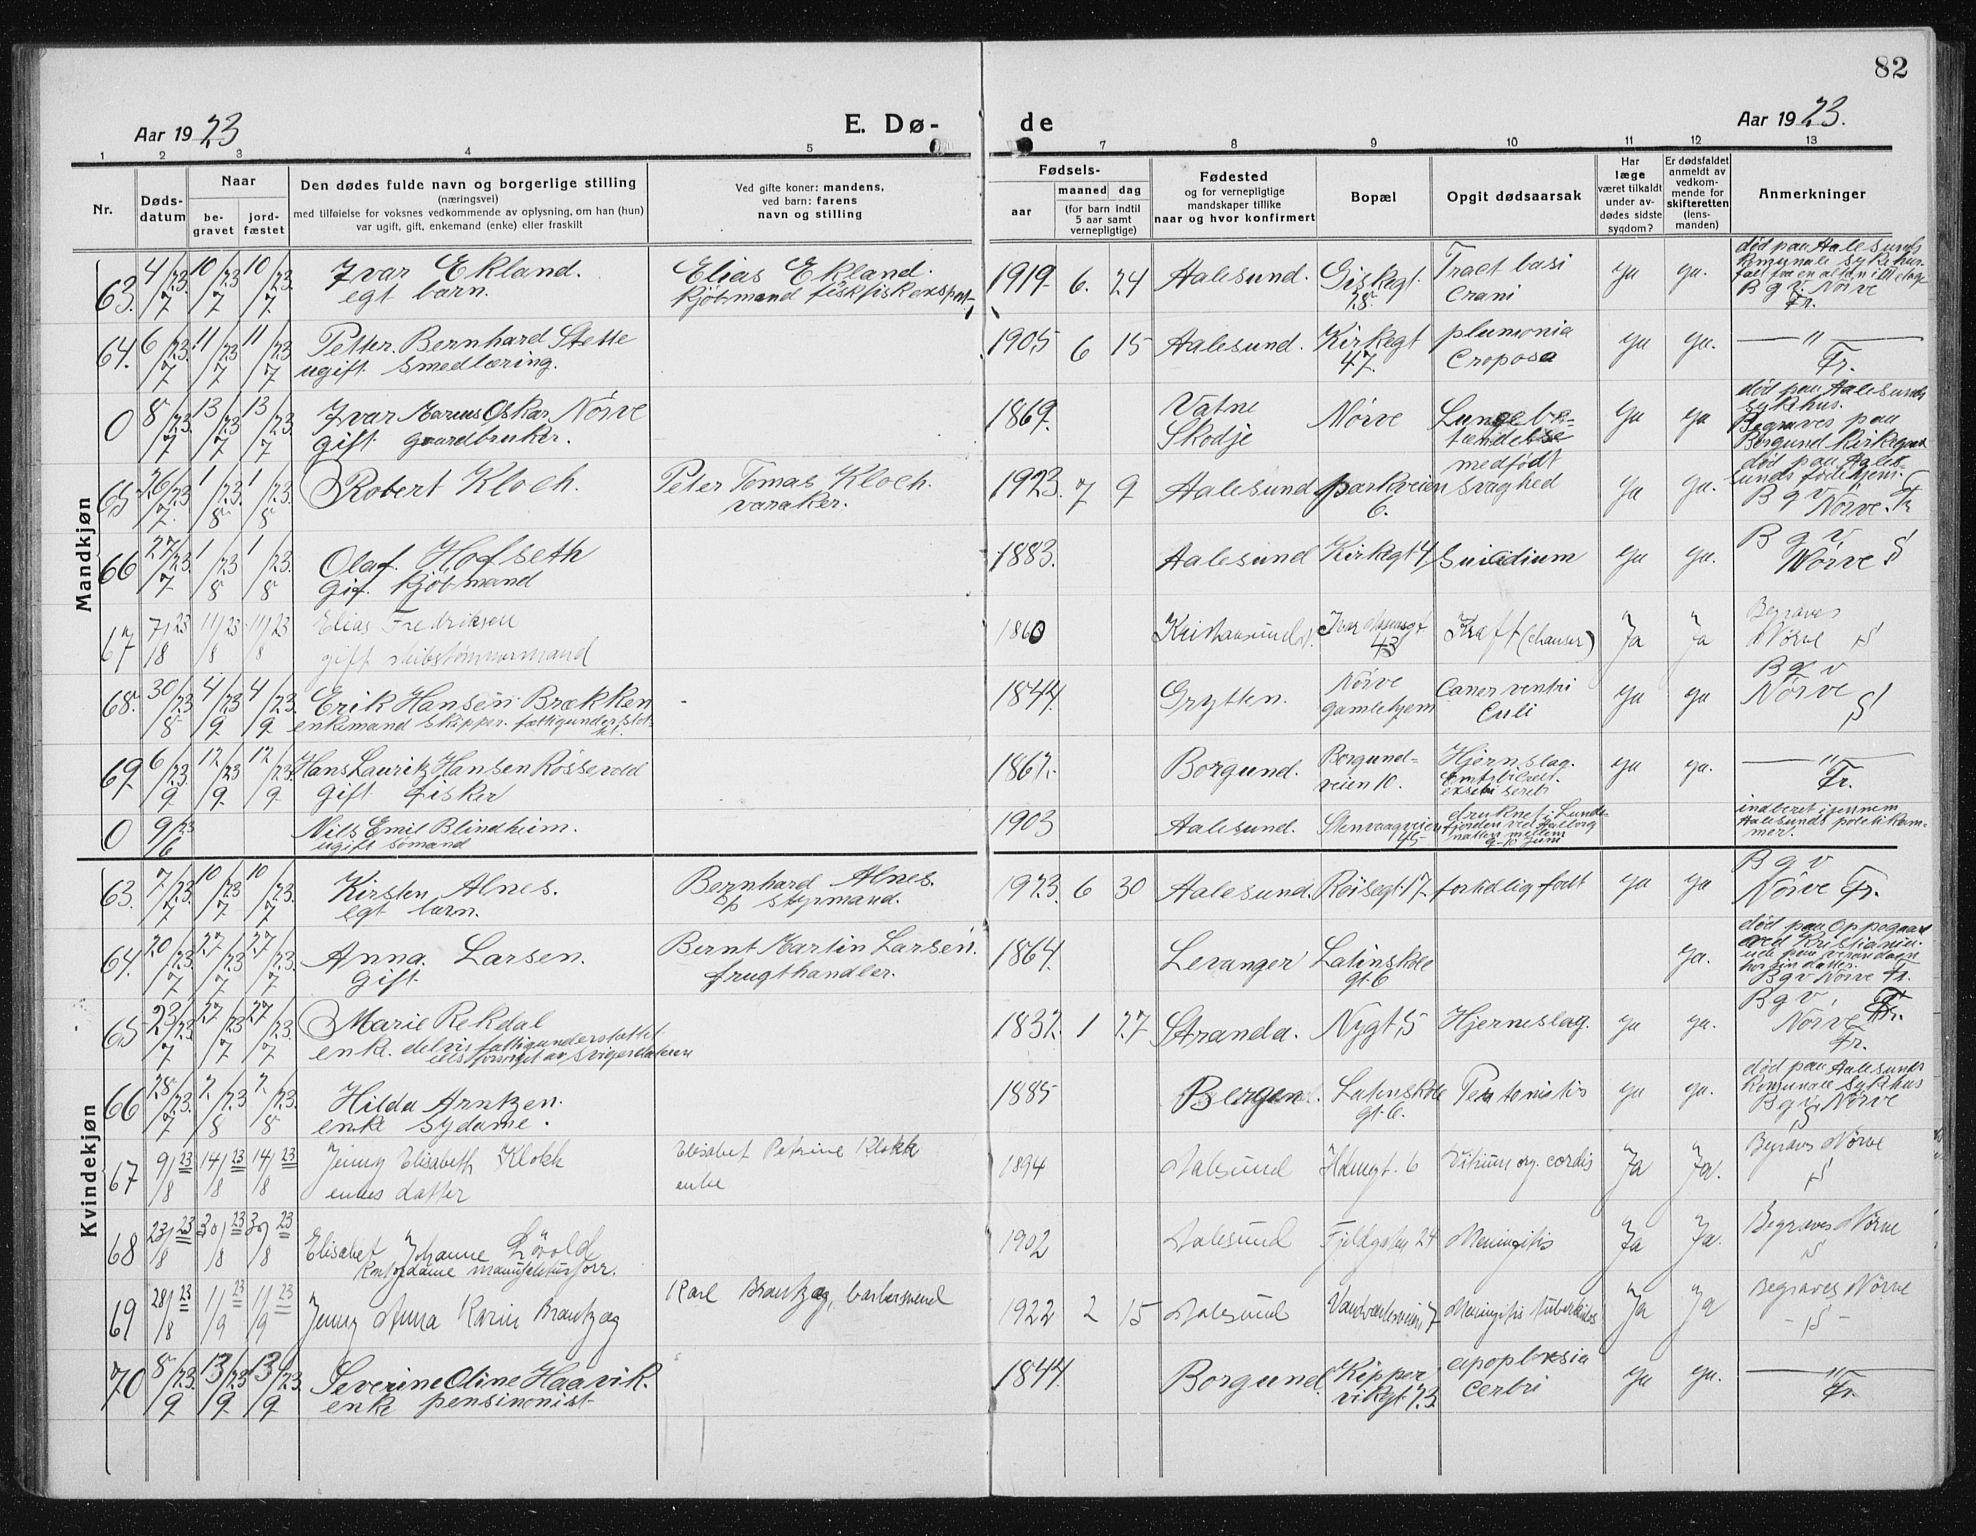 82
Aar 1923 E. Dø- de Aar 1923.
1 2 3 4 5 7 8 9 10 11 12 13
Nr. Døds-datum Naar be-gravet jord-fæstet Den dødes fulde navn og borgerlige stilling (næringsvei) med tilføielse for voksnes vedkommende av oplysning, om han (hun) var ugift, gift, enkemand (enke) eller fraskilt Ved gifte koner: mandens, ved barn: farens navn og stilling Fødsels- aar maaned dag (for barn indtil 5 aar samt vernepligtige) Fødested og for vernepligtige mandskaper tillike naar og hvor konfirmert Bopæl Opgit dødsaarsak Har læge været tilkaldt under av-dødes sidste sygdom? Er dødsfaldet anmeldt av vedkom-mende for skifteretten (lens-manden) Anmerkninger
Mandkjøn
63. 4/7 23. 10/7 23 10/7 23. Ivar Ekland. egt barn. Elias Ekland. kjøbmand 1919. 6. 24 Aalesund. Giskegt. 28 Fract basi Crani ya ya. død paa Aalesunds Bgv. Nörve Fr.
64. 6/7 23. 11/7 23 11/7 23 Petter Bernhard Stette ugift smedlæring. 1905 6 15 Aalesund. Kirkegt 47. plumonia Croposa ya ya. — " — Fr.
0 8/7 23. 13/7 23 13/7 23. Ivar Marius Oskar Nörve gift gaardbruker. 1869. Vatne Skodje Nörve Lungebe-tændelse ya ya død paa Aalesunds sykehus. Begraves paa Borgund Kirkegaard
65 26/7 23. 1/8 23. 1/8 23. Robert Kloch. Peter Tomas Kloch. varaker. 1923. 7 9 Aalesund. parkveien 6. medfödt svaghed ya ya. død paa Aale-sunds fødehjem. Bgv Nörve. Fr
66 27/7 23. 1/8 23 1/8 23. Olaf Hofseth gif. kjöbmand 1883. Aalesund Kirkegt 4 Suicidium ya ya. Bgv Nörve S
67 7/8 23 11/8 23 11/8 23 Elias Fredriksen gift skibstømmermand 1860 Kristiansund. 43 Kræft (chanser) Ja Ja Begraves Nörve S
68. 30/8 23 4/9 23. 4/9 23. Erik Hansen Brækken enkemand skipper. fattigunderstøt-tet. 1844. Grytten. Nörve Gamlehjem Caner ventri Culi ya ya Bgv Nörve S
69. 6/9 23. 12/9 23 12/9 23. Hans Lauritz Hansen Røssevold gift fisker 1867. Borgund. Borgund-veien 10. Hjernslag. ya ya. — " — Fr.
0 9/6 23 Nils Emil Blindheim. ugift sömand 1903 Aalesund. Stenvaagveien 45 druknet i Lunde-fjorden ved Aalborg natten mellem 9-10 Juni indberet gjennem Aalesunds politikam-mer.
Kvindekjøn
63. 7/7 23. 10/7 23 10/7 23. Kirsten Alnes. egt barn. Bernhard Alnes. styrmand. 1923. 6 30 Aalesund. Röisegt. 17. fortidlig födt ya ya Bgv Nörve Fr.
64. 20/7 23. 27/7 23 27/7 23. Anna Larsen. gift Bernt Martin Larsen. frugthandler. 1864. Levanger Latinskole gt. 6 ya. død paa Oppegaard ved Kristiania. ude paa verandaen hos sin datter. Bgv Nörve Fr.
65 23/7 23. 27/7 23 27/7 23. Marie Rekdal enke. delvis fattigunderstøttet 1832. 1 27 Stranda. Nygt. 5 Hjerneslag. ya ya. Bgv, Nörve Fr.
66 28/7 23. 2/8 23 2/8 23. Hilda Arntzen. enke sydame. 1885 Bergen. Latinskole gt. 6. Peritonitis ya ya. død paa Aalesunds Komunale Sykehus Bgv Nörve S
67 9/8 23 14/8 23 14/8 23 Jenny Elisabeth Klokk enkes datter Elisabet Petrine Klokk enke 1894 Aalesund 6 Vitium org. cordis Ja Ja. Begraves Nörve S
68 23/8 23 30/8 23 30/8 23 Elisabet Johanne Lövold Kontordame manufakturforr. 1902 Aalesund Fjeldgaten 24 Meningitis Ja Ja. Begraves Nörve S
69 28/8 23 1/9 23 1/9 23 Jenny Anna Karin Brantzæg Karl Brantzæg, barbersvend 1922 2 15 Aalesund 7 Meningitis tuberkulos Ja Ja Begraves Nörve - S -
70 8/9 23. 13/9 23 13/9 23. Severine Oline Haavik. enke pensinonist 1844. Borgund. Kipper vikgt. 73. apoplexia cerbri ya ya. — " — Fr.